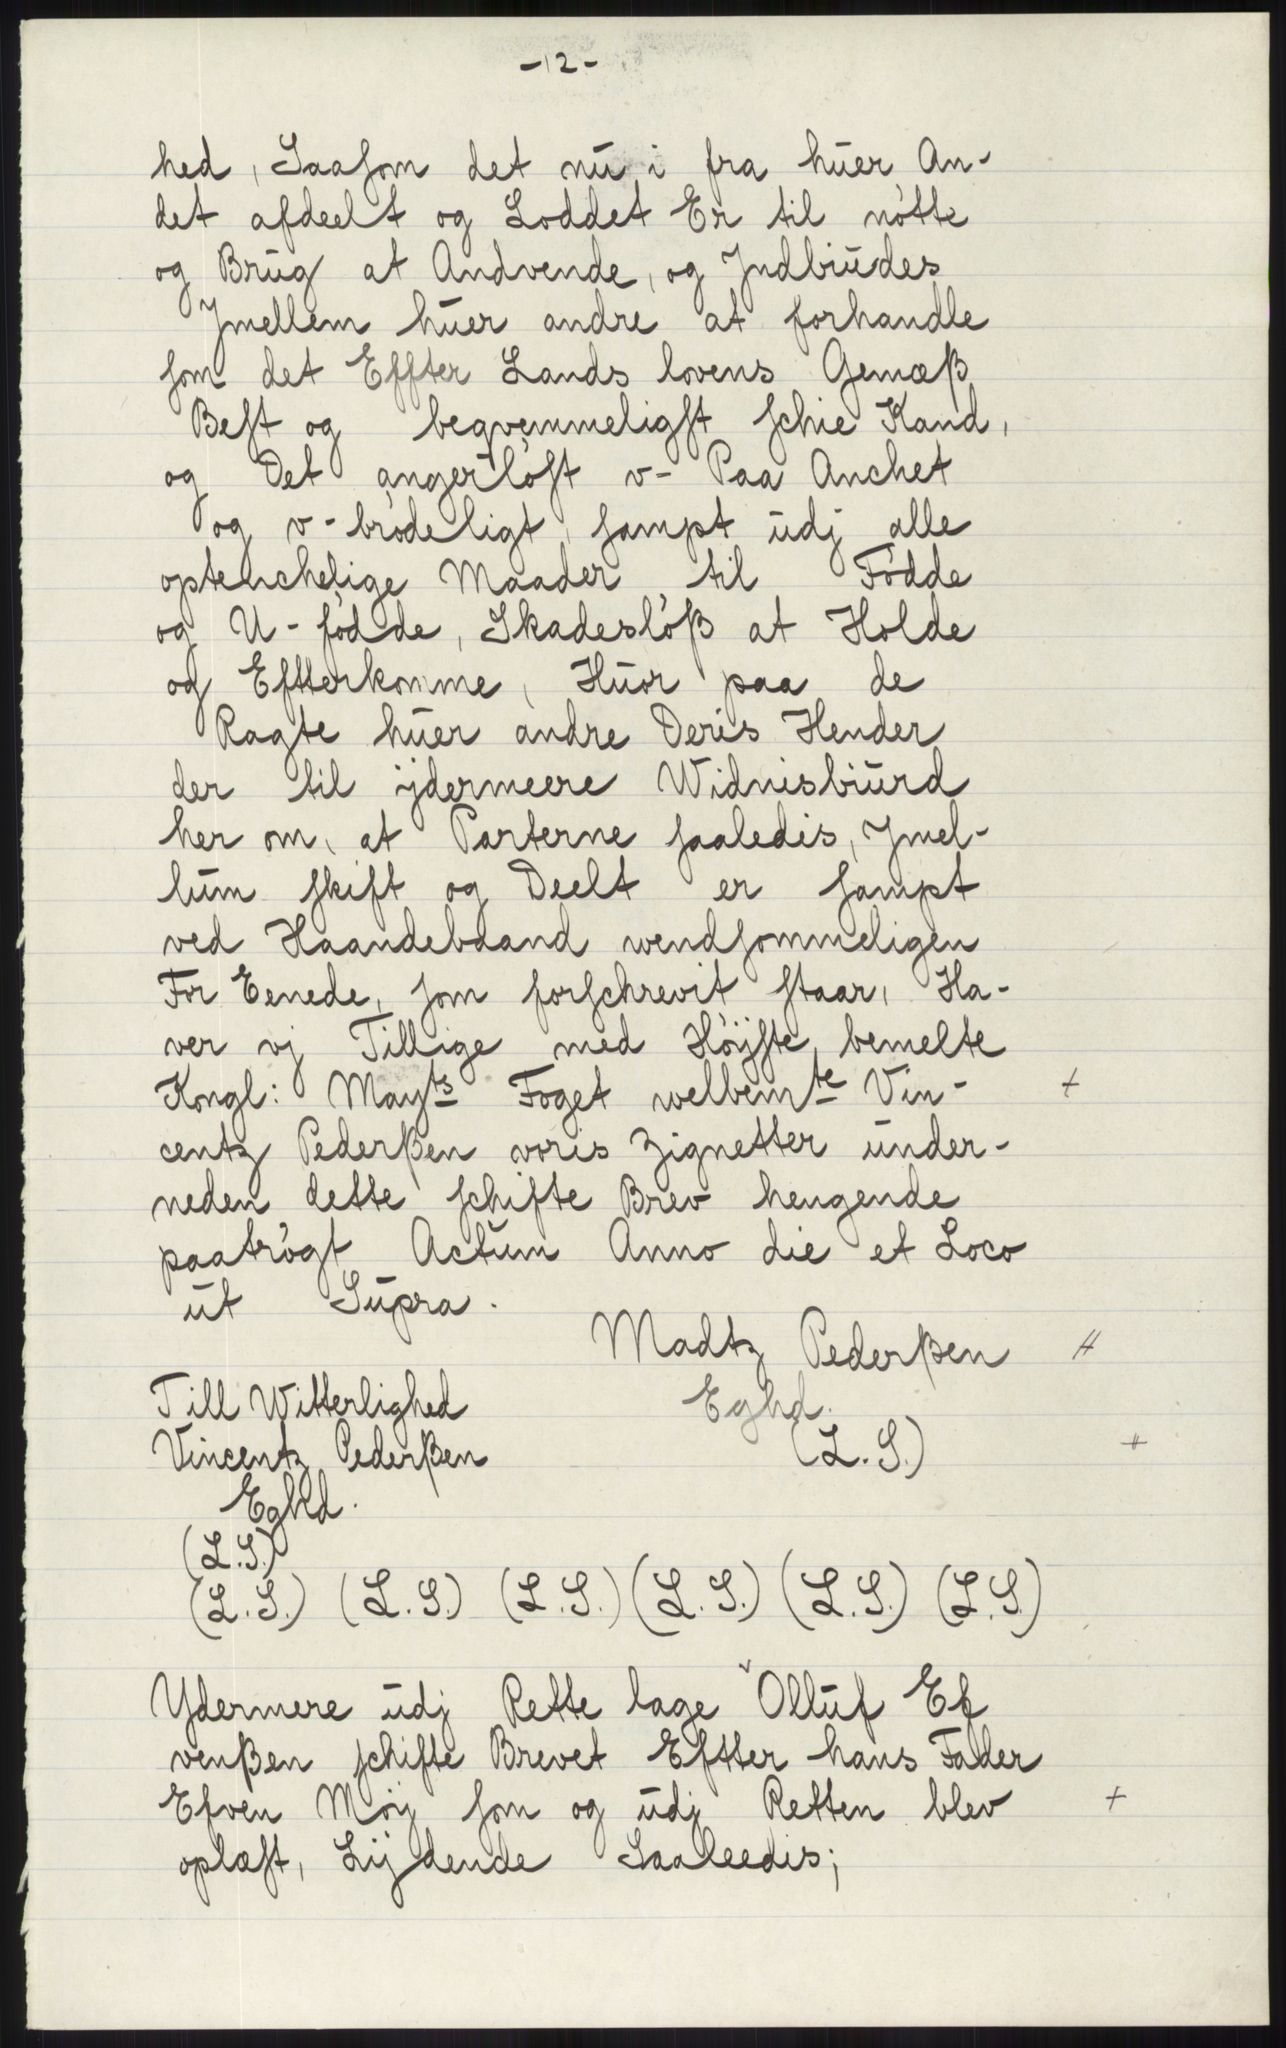 -12-
hed, Saasom det nū i fra hūer An-
det afdeelt og Loddet Er til nøtte
og Brūg at Andvende, og Jndbiūdes
Jmellem hūer andre at forhandle
som det Effter Lands lovens Gemæß
Best og beqvemmeligst schie Kand,
og Det angerløst v- Paa Anchet
og v-brødeligt, sampt ūdj alle
optenchelige Maader til Fødde
og U-fødde, Skadesløß at Holde
og Eftterkomme, Hūor paa de
Ragte hūer andre Deris Hender
der til ÿdermeere Widnisbiūrd
her om, at Parterne saaledis, Jmel-
lūm skift og Deelt er sampt
ved Haandebaand wendsommeligen
For Eenede, som forschrevit staar, Ha-
ver vj Tillige med Høÿste bemelte
Kongl: Mayts Foget welbemte Vin- +
centz Pederßen voris Zignetter ūnder-
neden dette schifte Brev hengende
paatrøgt Actūm Anno die et Loco
ūt Sūpra.
Madtz Pederßen #
Till Witterlighed Eghd.
Vincentz Pederßen (L.S.) +
Eghd.
(L.S.)
(L.S.) (L.S.) (L.S.) (L.S.) (L.S.) (L.S.)
Ydermere ūdj Rette lage Ollūf Ef
venßen schifte Brevet Eftter hans Fader
Efven Møy som og ūdj Retten blev +
oplæst, Lÿdende Saaleedis;